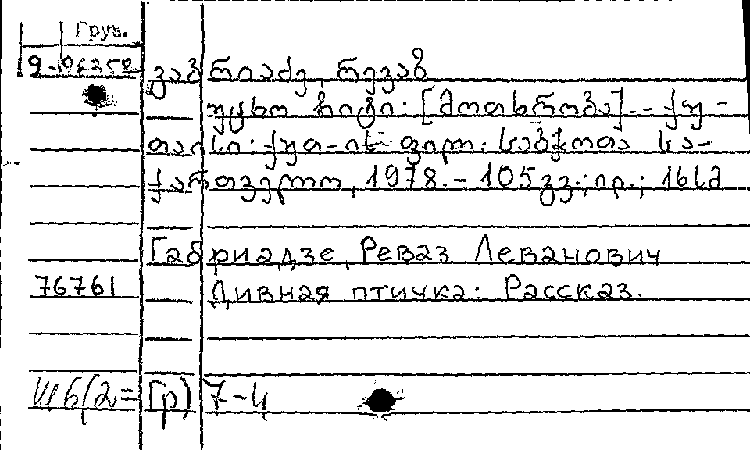 Груз.
გაბრიაძე, რევაზ
უცხო ჩიტი: [მოთხრობა]. - ქუ-
თაისი: ქუთ-ის ფილ. საბჭოთა სა-
ქართველო, 1978. - 105 გვ.; ил.; 16 см
Габриадзе, Реваз Леванович
76761 Дивная птичка: Рассказ.
Ш6(2=Гр)7-4